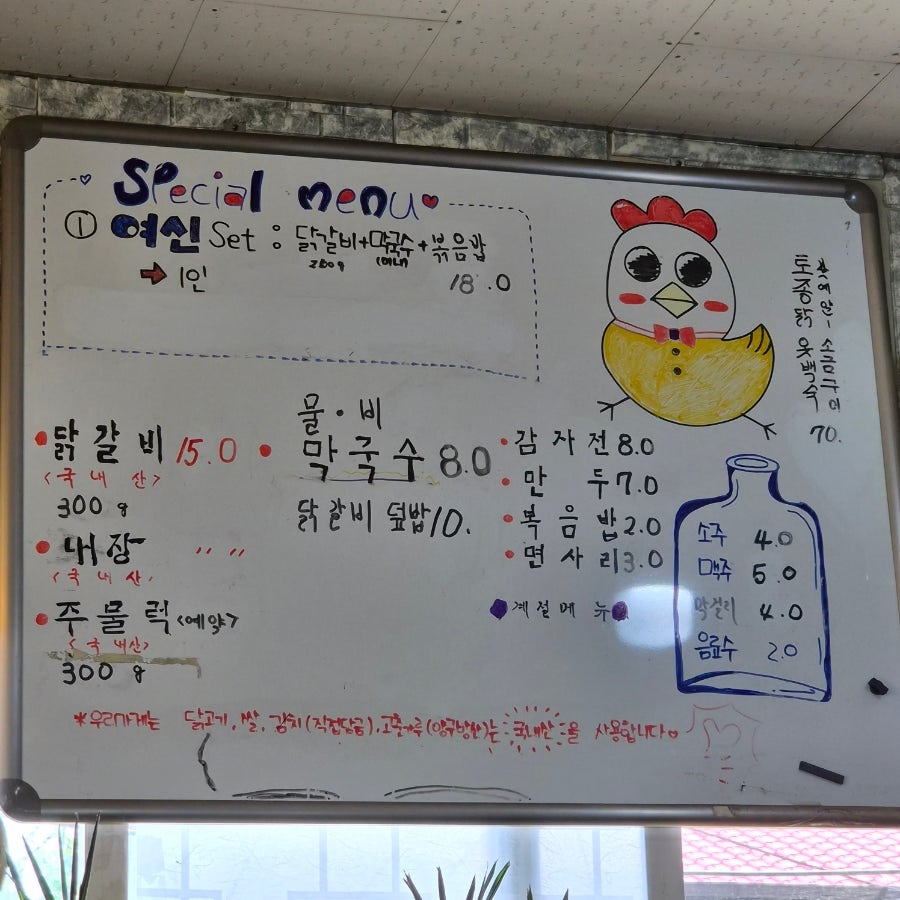 Special menu
① 여신 Set : 닭갈비+막국수+볶음밥
200g (미니)
→ 1인 18.0
*예약- 소금구이
토종닭 옻백숙
70.
닭갈비 15.0
<국내산>
300g
내장 〃 〃
<국내산>
주물럭 <예약>
<국내산>
300g
물·비
막국수 8.0
닭갈비 덮밥 10.
감자전 8.0
만두 7.0
볶음밥 2.0
면사리 3.0
계절메뉴
소주 4.0
맥주 5.0
막걸리 4.0
음료수 2.0
*우리가게는 닭고기, 쌀, 김치(직접담금), 고춧가루(양구방산)는 국내산을 사용합니다